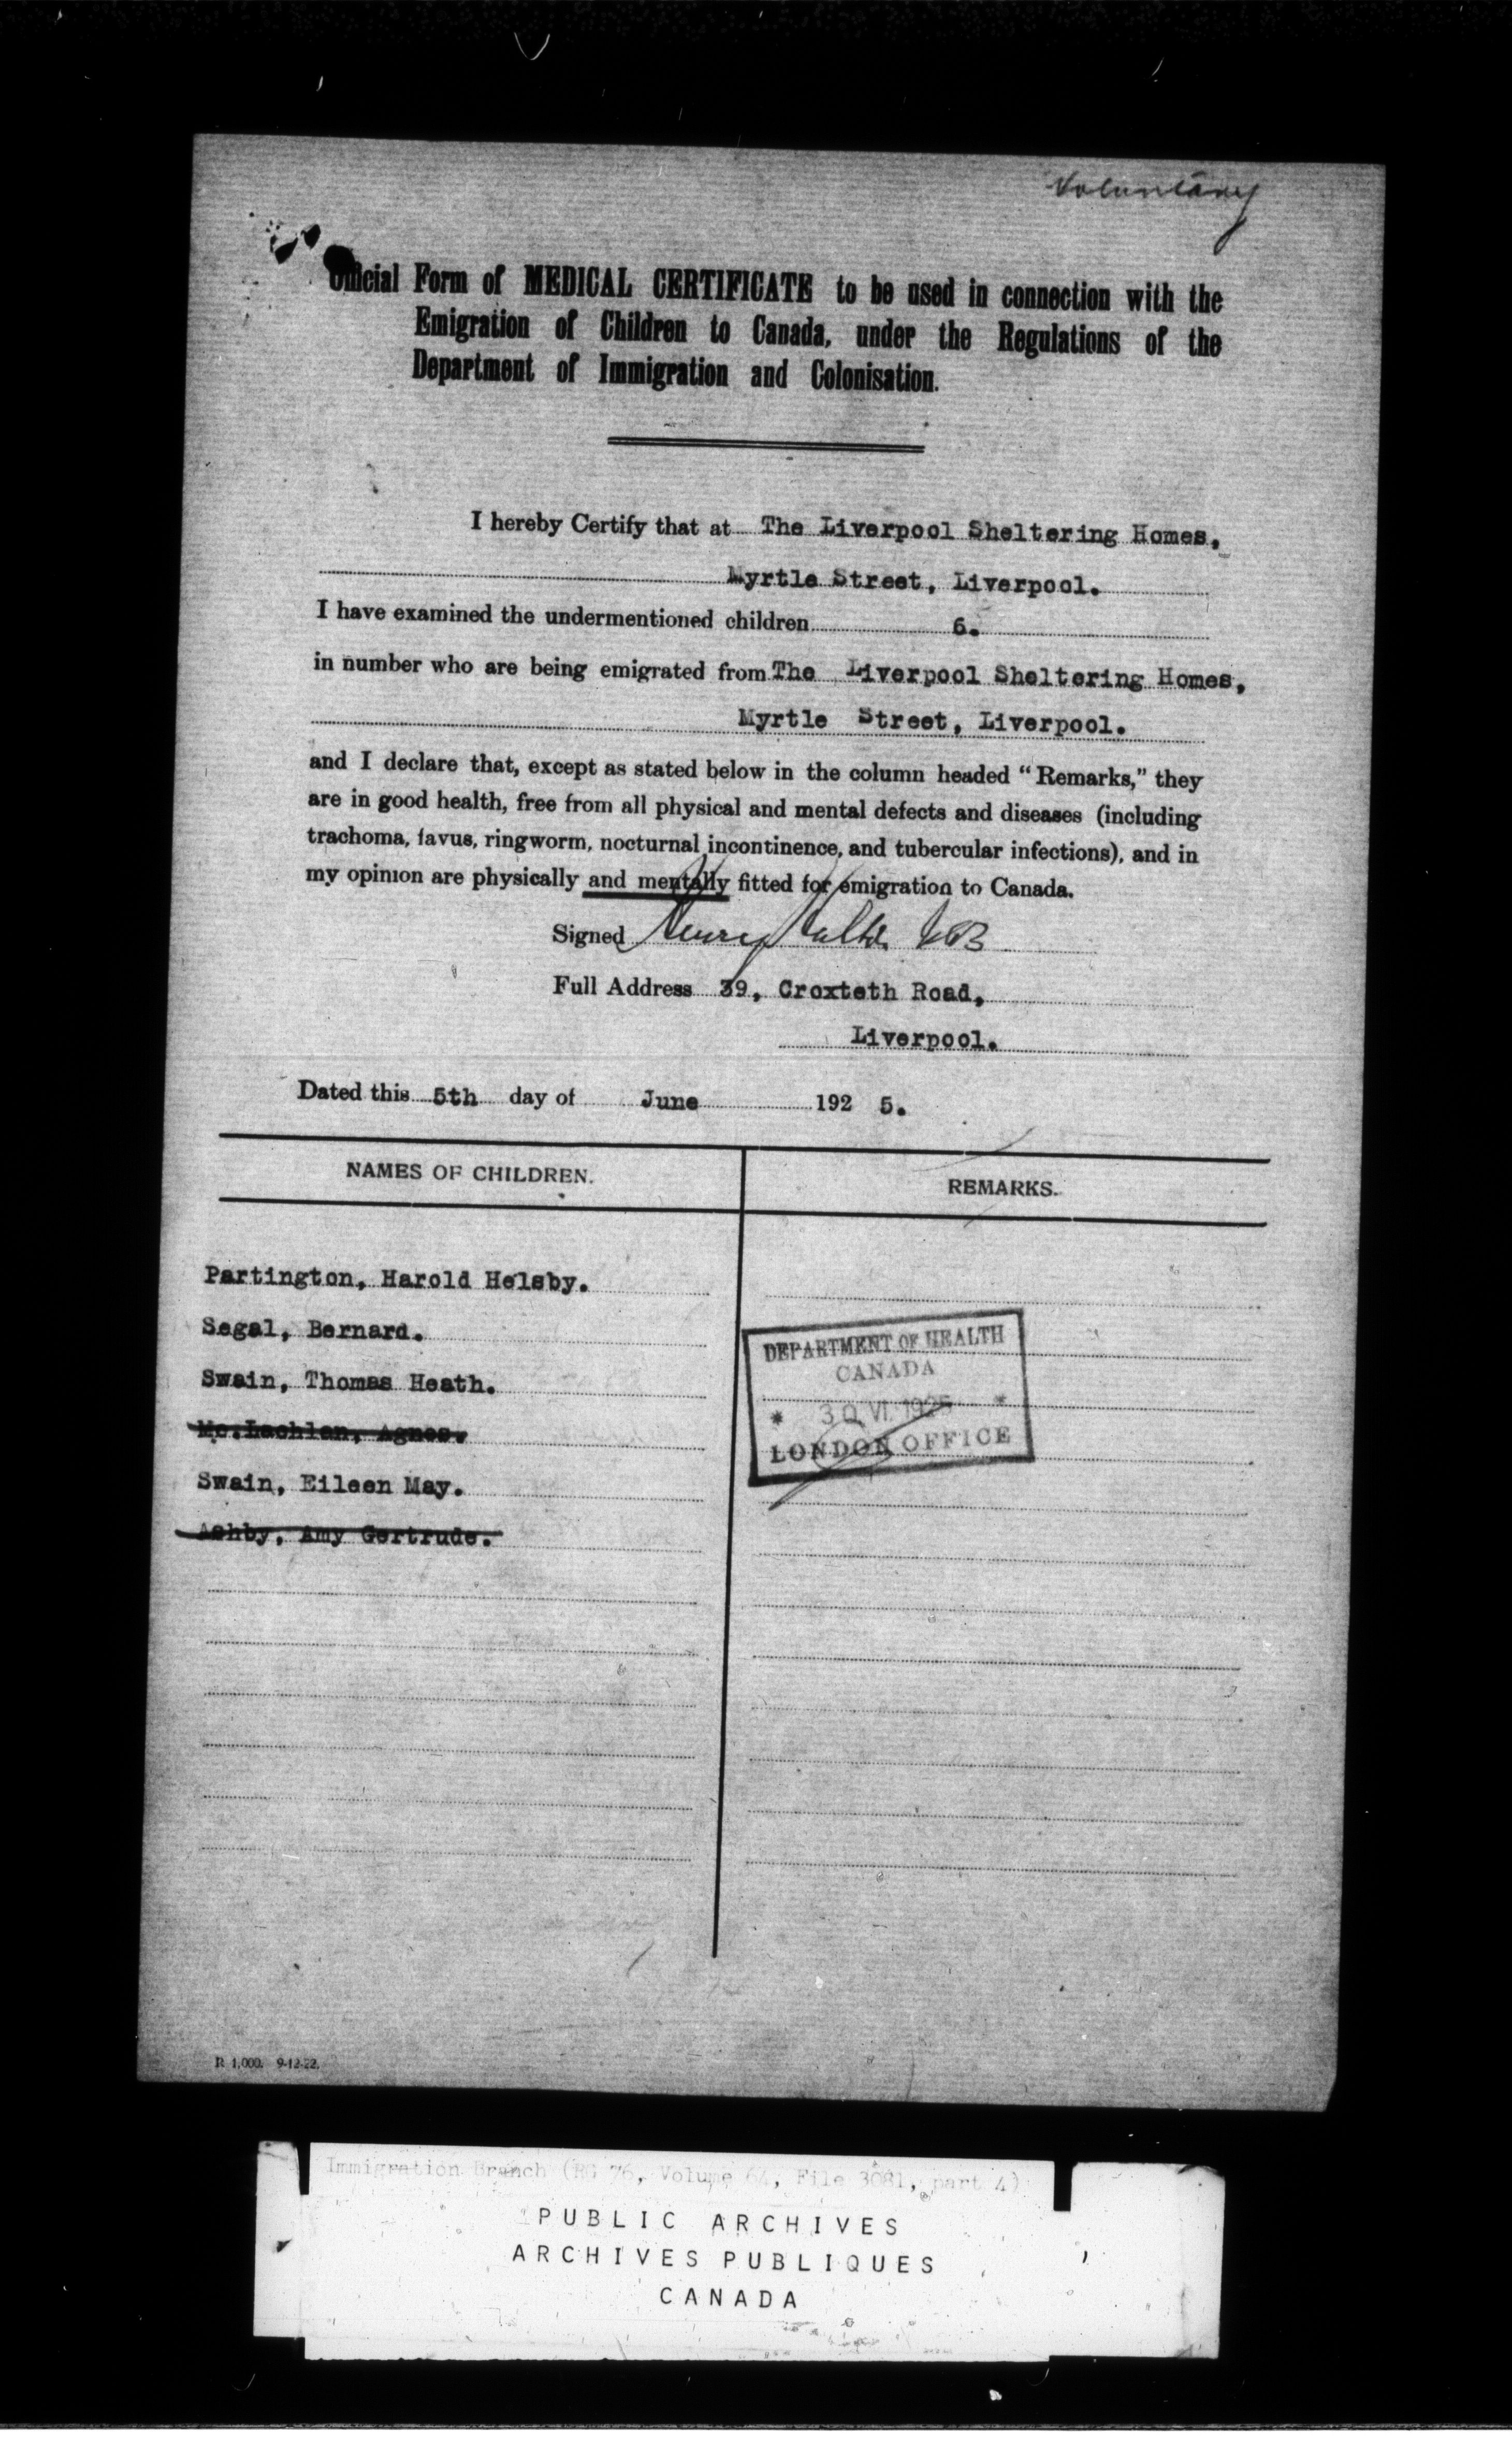 Voluntary
Official Form of MEDICAL CERTIFICATE to be used in connection with the
Emigration of Children to Canada, under the Regulations of the
Department of Immigration and Colonisation.
I hereby Certify that at The Liverpool Sheltering Homes,
Myrtle Street, Liverpool.
I have examined the undermentioned children 6.
in number who are being emigrated from The Liverpool Sheltering Homes,
Myrtle Street, Liverpool.
and I declare that, except as stated below in the column headed "Remarks," they
are in good health, free from all physical and mental defects and diseases (including
trachoma, favus, ringworm, nocturnal incontinence, and tubercular infections), and in
my opinion are physically and mentally fitted for emigration to Canada.
Signed Henry
Full Address 39, Croxteth Road,
Liverpool.
Dated this 5th day of June 192 5.
NAMES OF CHILDREN.
REMARKS.
Partington, Harold Helsby.
Segal, Bernard.
Swain, Thomas Heath.
Mc.Lachlan, Agnes.
Swain, Eileen May.
Ashby, Amy Gertrude.
DEPARTMENT OF HEALTH
CANADA
* 30 VI. 1925 *
LONDON OFFICE
R 1,000. 9-12-22.
Immigration Branch (RG 76, Volume 64, File 3081, part 4)
PUBLIC ARCHIVES
ARCHIVES PUBLIQUES
CANADA